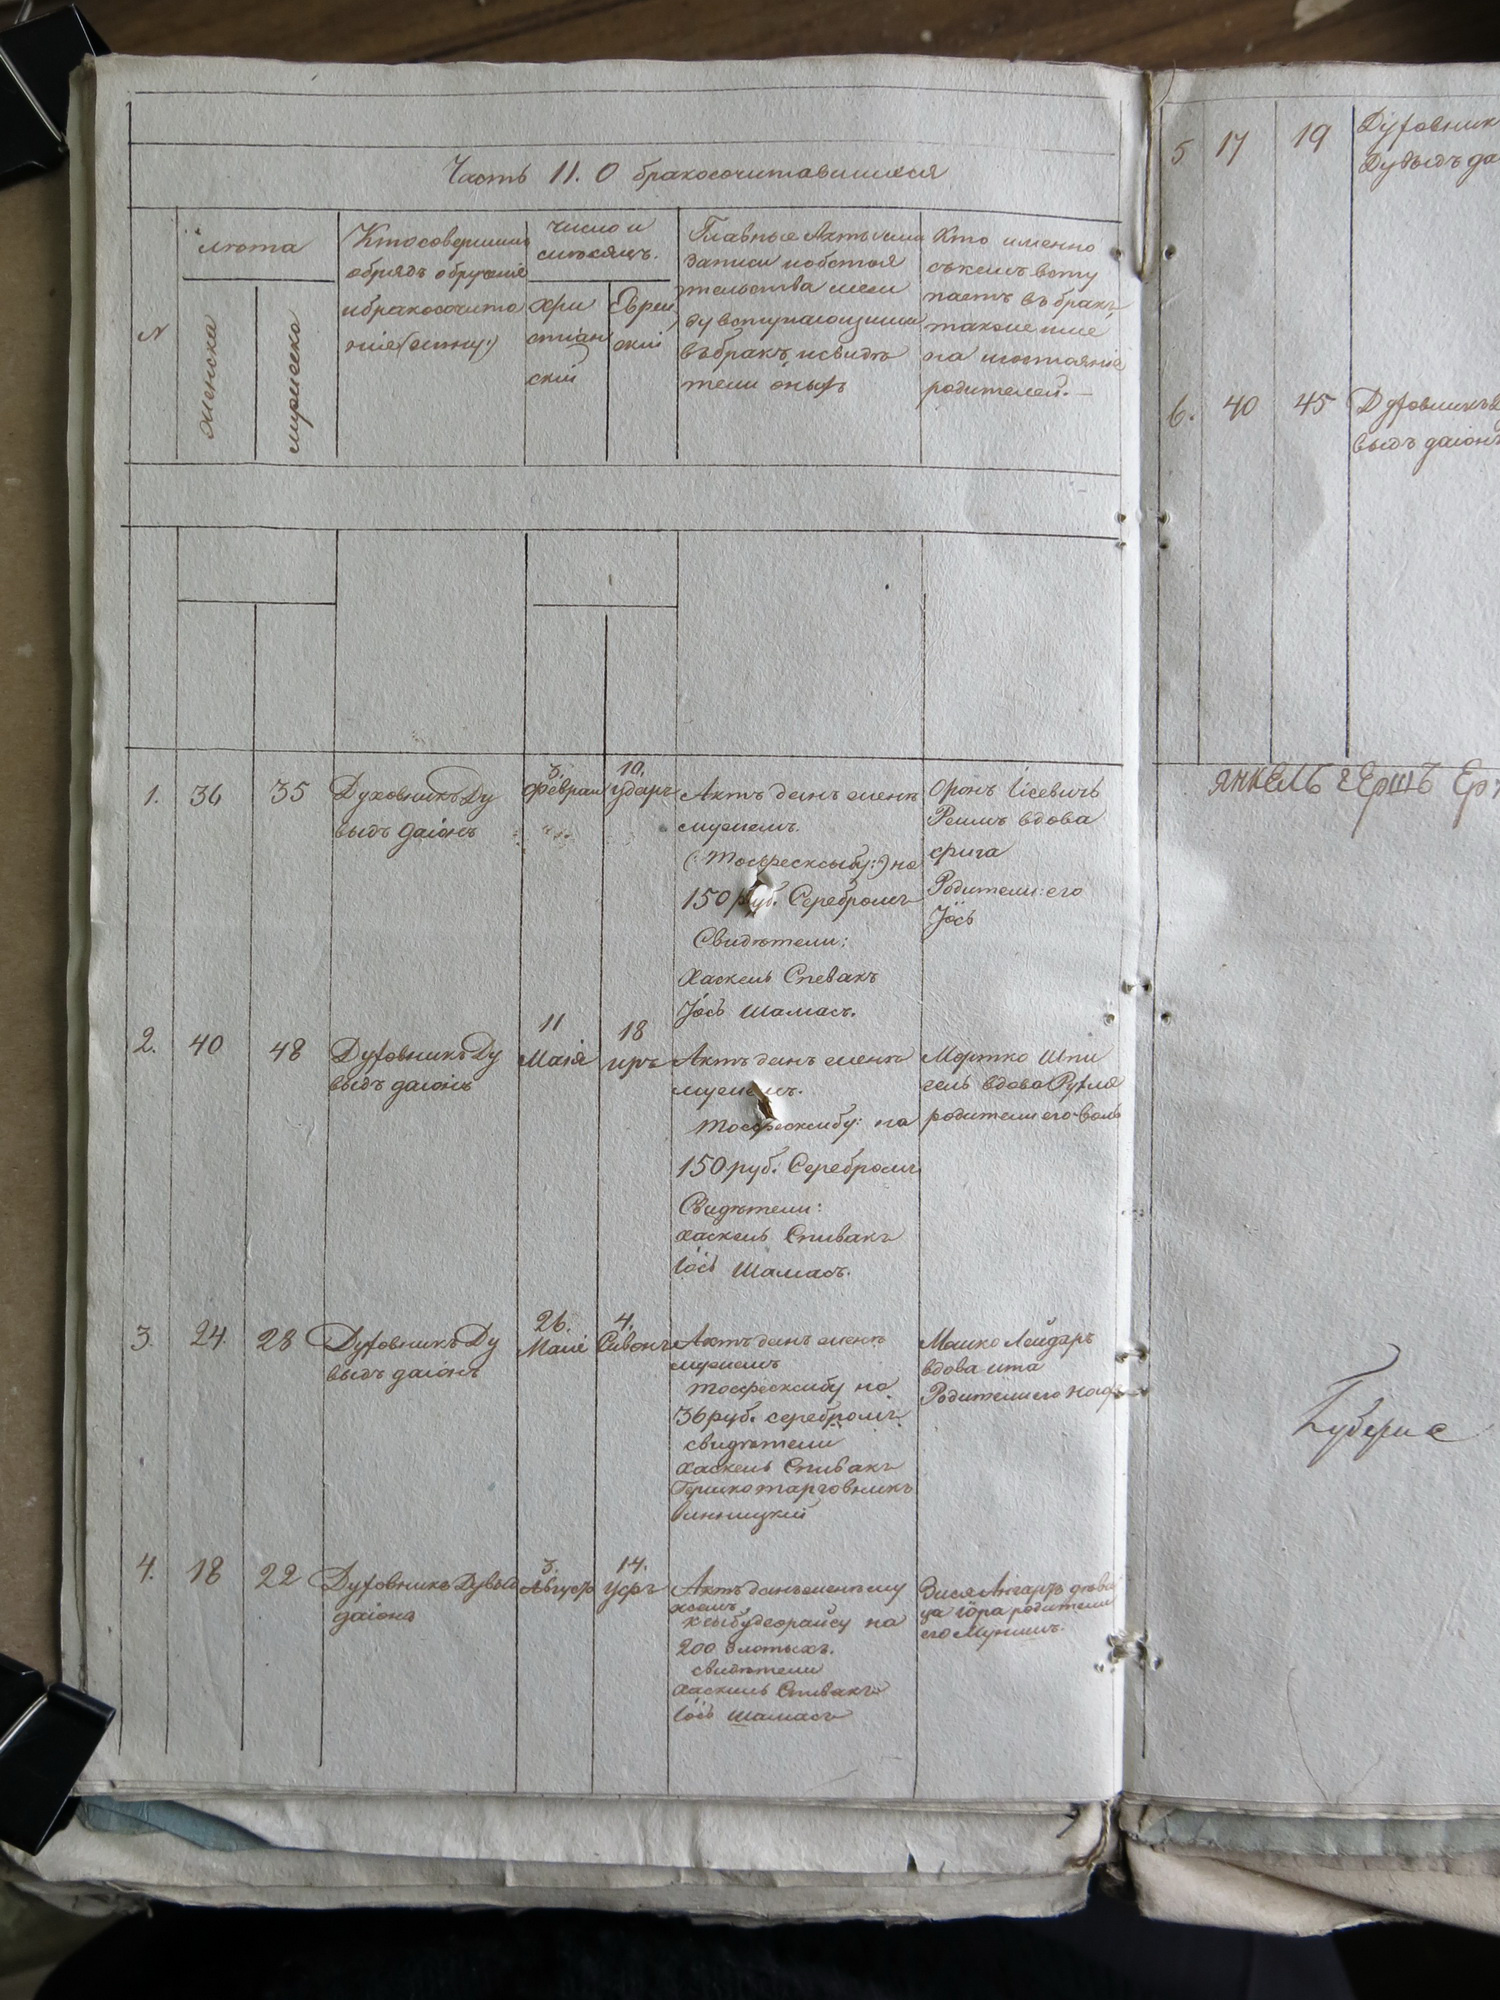 Часть 11. О бракосочитавшиеся
N
лѣта
женска
мужеска
Кто совершилъ
обрядъ обрученія
и бракосочита
нія
число и
мѣсяцъ.
Хри
стіан
скій
Еврей
скій
Главные Акты или
записи и обстоя
тельства меж
ду вступающими
въ бракъ и свидѣ
тели оныхъ
Кто именно
съ кемъ всту
паетъ въ бракъ,
также име
на и состояніе
родителей.
1.
36
35
Духовникъ Ду
выдъ даіонъ
3.
Феврал
10.
ударъ
Актъ данъ менж
мужемъ.
на
150 руб. Серебромъ
Свидѣтели:
Хаскель Спевакъ
Іось Шамасъ.
Оронъ
вдова
Родители его
Іось
2.
40
48
Духовникъ Ду
выдъ даіонъ
11
Маія
18
иръ
Актъ данъ менж
мужемъ.
на
150 руб. Серебромъ
Свидѣтели:
хаскель Спивакъ
Іось Шамасъ.
Мортко Шпи
гель вдова Рухля
родители его
3.
24.
28
Духовникъ Ду
выдъ даіонъ
26.
Маія
4.
Сивонъ
Актъ данъ менж
мужемъ
на
36 руб. серебромъ
свидѣтели
хаскель Спивакъ
Гершко тарговникъ
винницкій
Мошко Лейдаръ
вдова ита
Родители его
4.
18
22
Духовникъ Дувыд
даіонъ
3.
Августъ
14.
Актъ данъ менж му
жемъ,
на
200 злотыхъ.
свидѣтели
хаскель Спивакъ
Іось шамасъ
Зися
родители
его
5
17
19
Духовник
Дувыдъ да
6.
40
45
Духовникъ Д
выдъ даіонъ
ЯНКЕЛЬ ГЕРШЪ